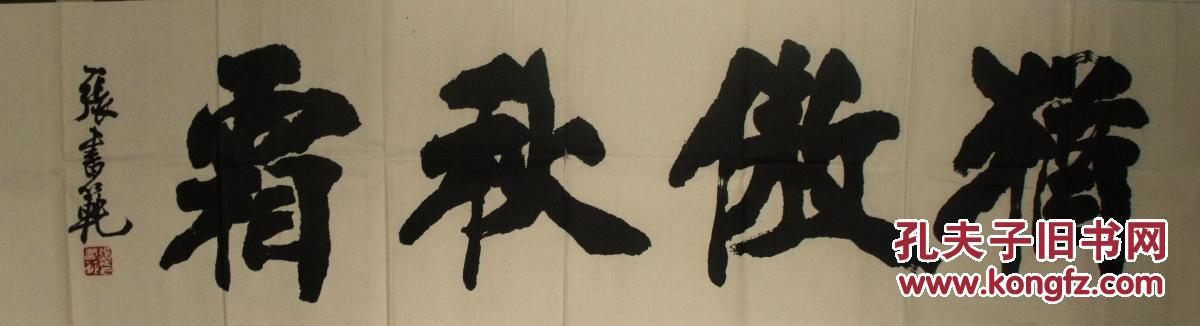 猶傲秋霜
張書範
孔夫子旧书网
www.kongfz.com